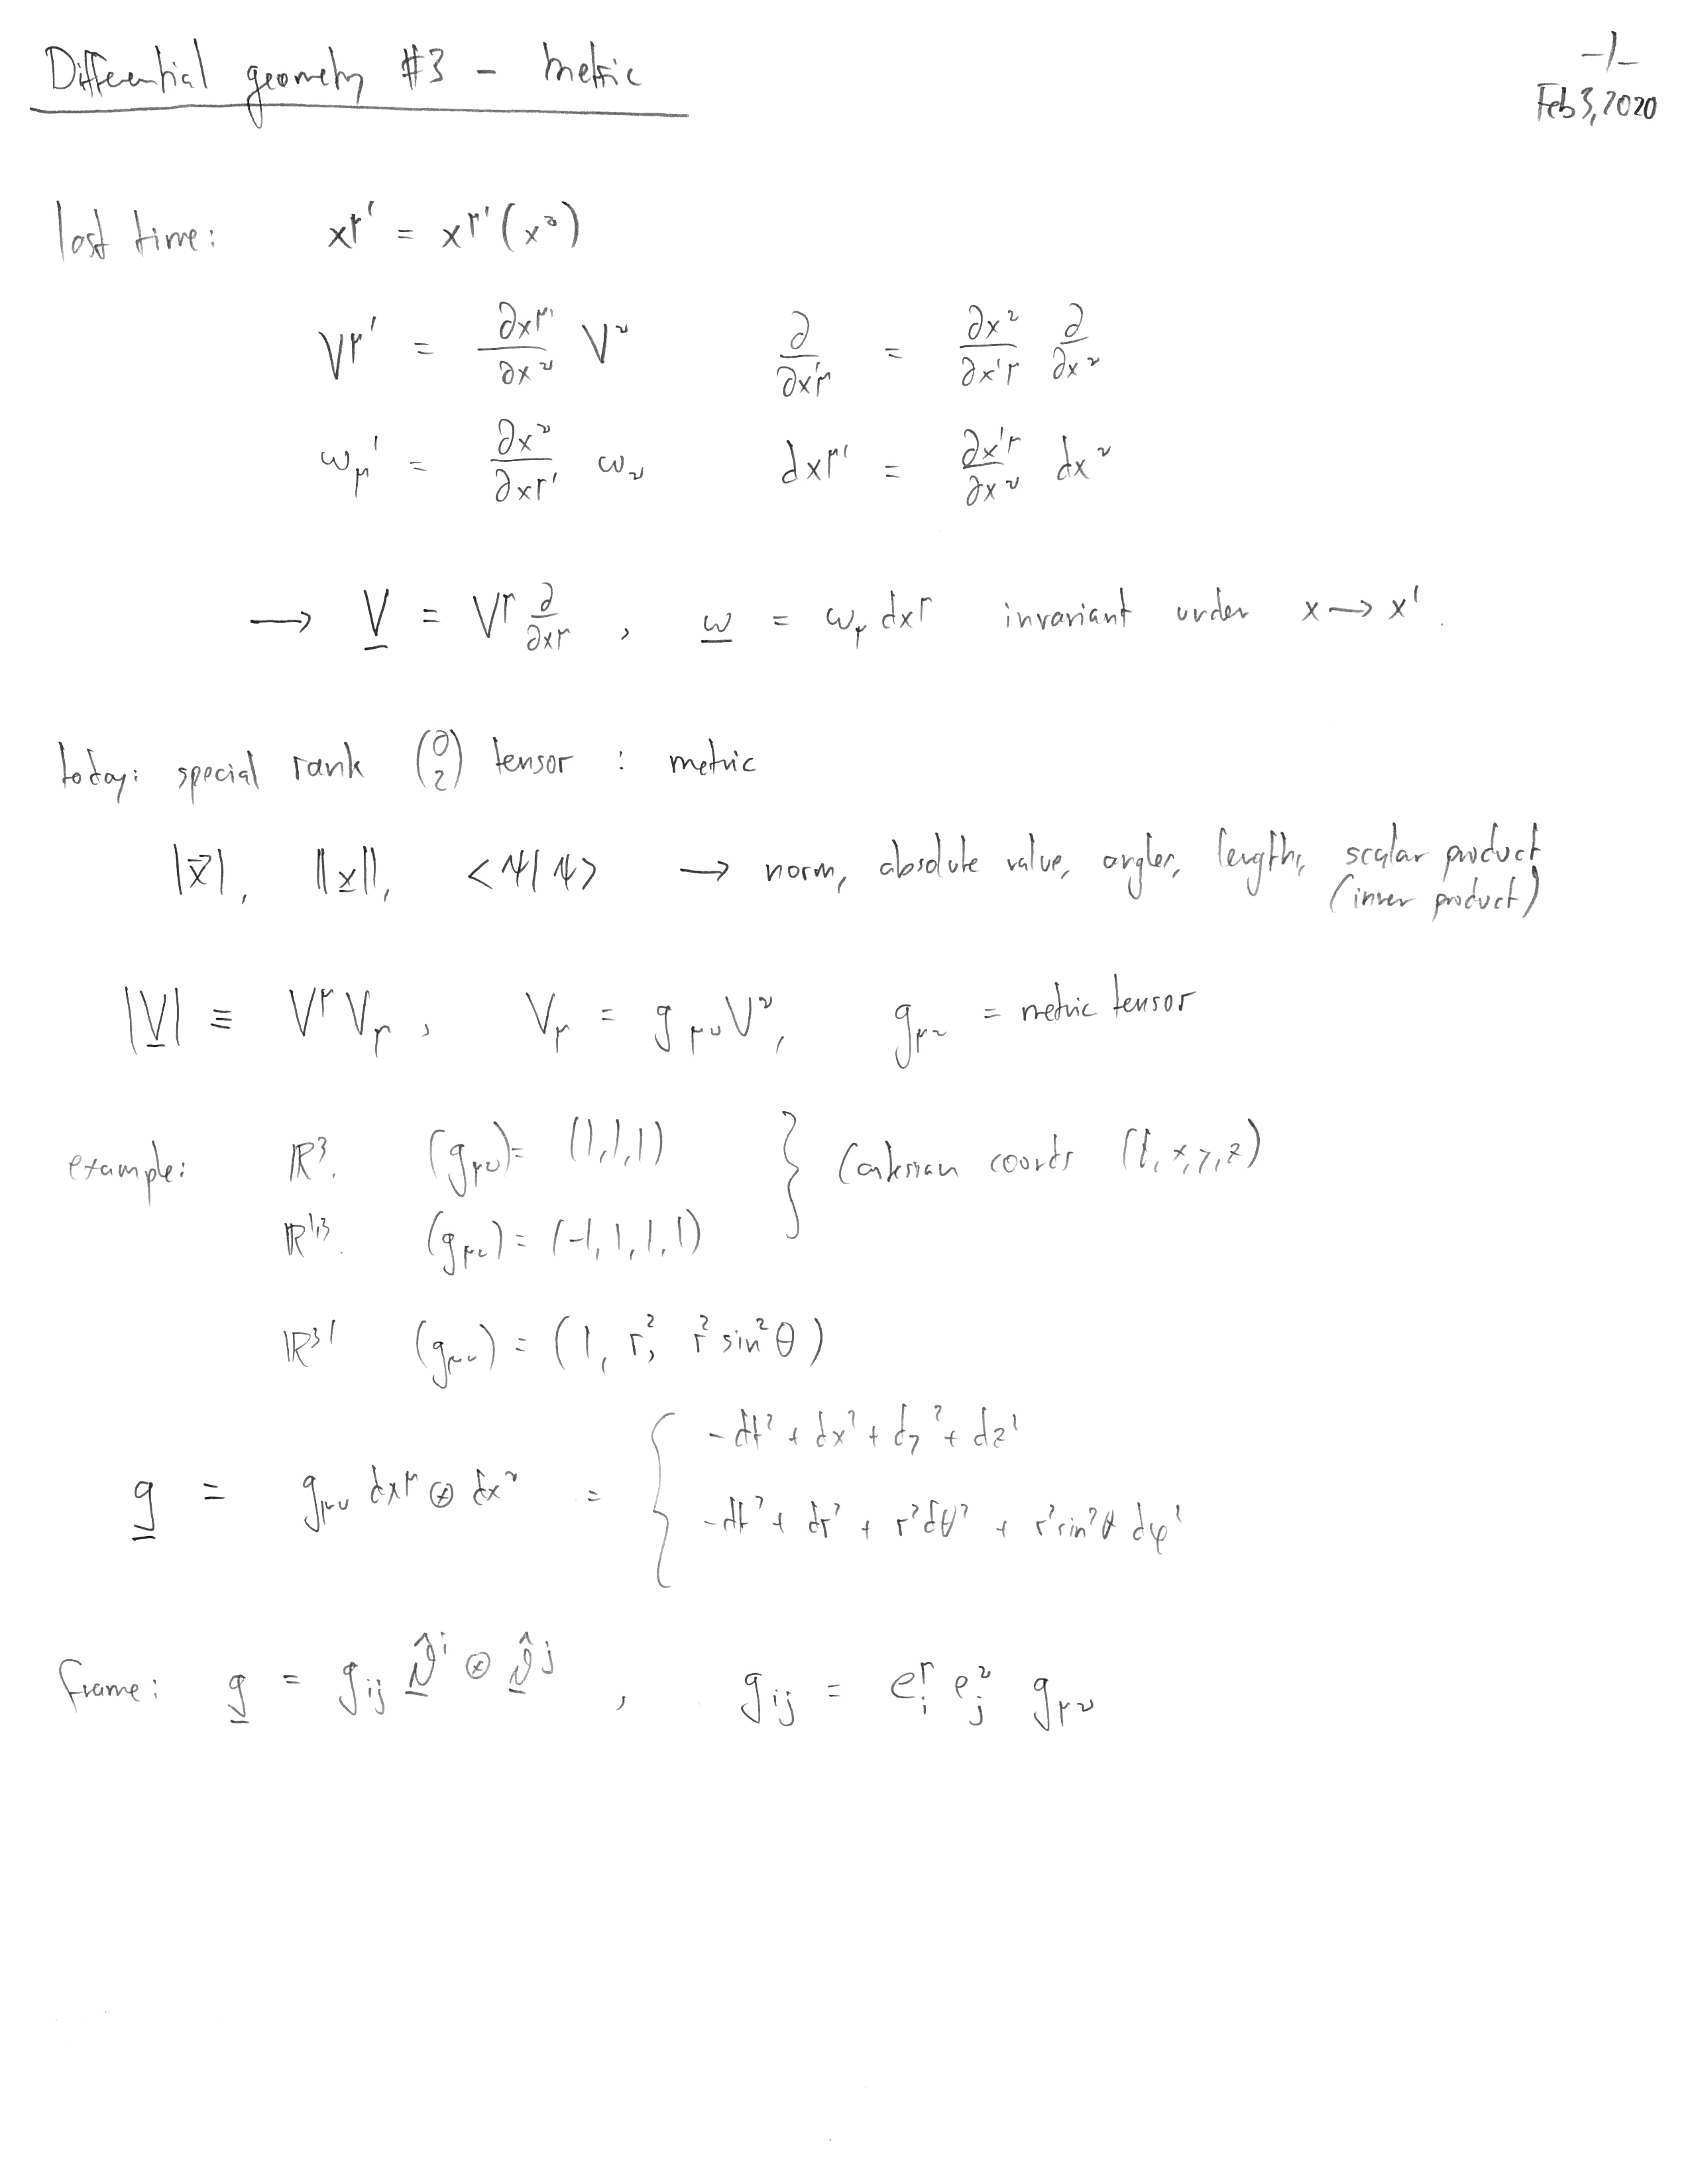 Differential geometry #3 - metric
-1-
Feb 3, 2020
last time: x^μ' = x^μ'(x^ν)
V^μ' = ∂x^μ'/∂x^ν V^ν    ∂/∂x'^μ = ∂x^ν/∂x'^μ ∂/∂x^ν
ω_μ' = ∂x^ν/∂x^μ' ω_ν    dx^μ' = ∂x'^μ/∂x^ν dx^ν
→ V = V^μ ∂/∂x^μ , ω = ω_μ dx^μ invariant under x → x'.
today: special rank (0 2) tensor : metric
|x⃗|, ||x||, <ψ|ψ> → norm, absolute value, angles, lengths, scalar product
(inner product)
|V| ≡ V^μ V_μ , V_μ = g_μν V^ν, g_μν = metric tensor
example: ℝ³. (g_μν) = (1,1,1) } Cartesian coords (t,x,y,z)
ℝ^1,3. (g_μν) = (-1,1,1,1)
ℝ³' (g_μν) = (1, r², r² sin²θ)
g = g_μν dx^μ ⊗ dx^ν = { -dt² + dx² + dy² + dz²
-dt² + dr² + r²dθ² + r²sin²θ dφ²
frame: g = g_ij ϑ̂^i ⊗ ϑ̂^j , g_ij = e_i^μ e_j^ν g_μν